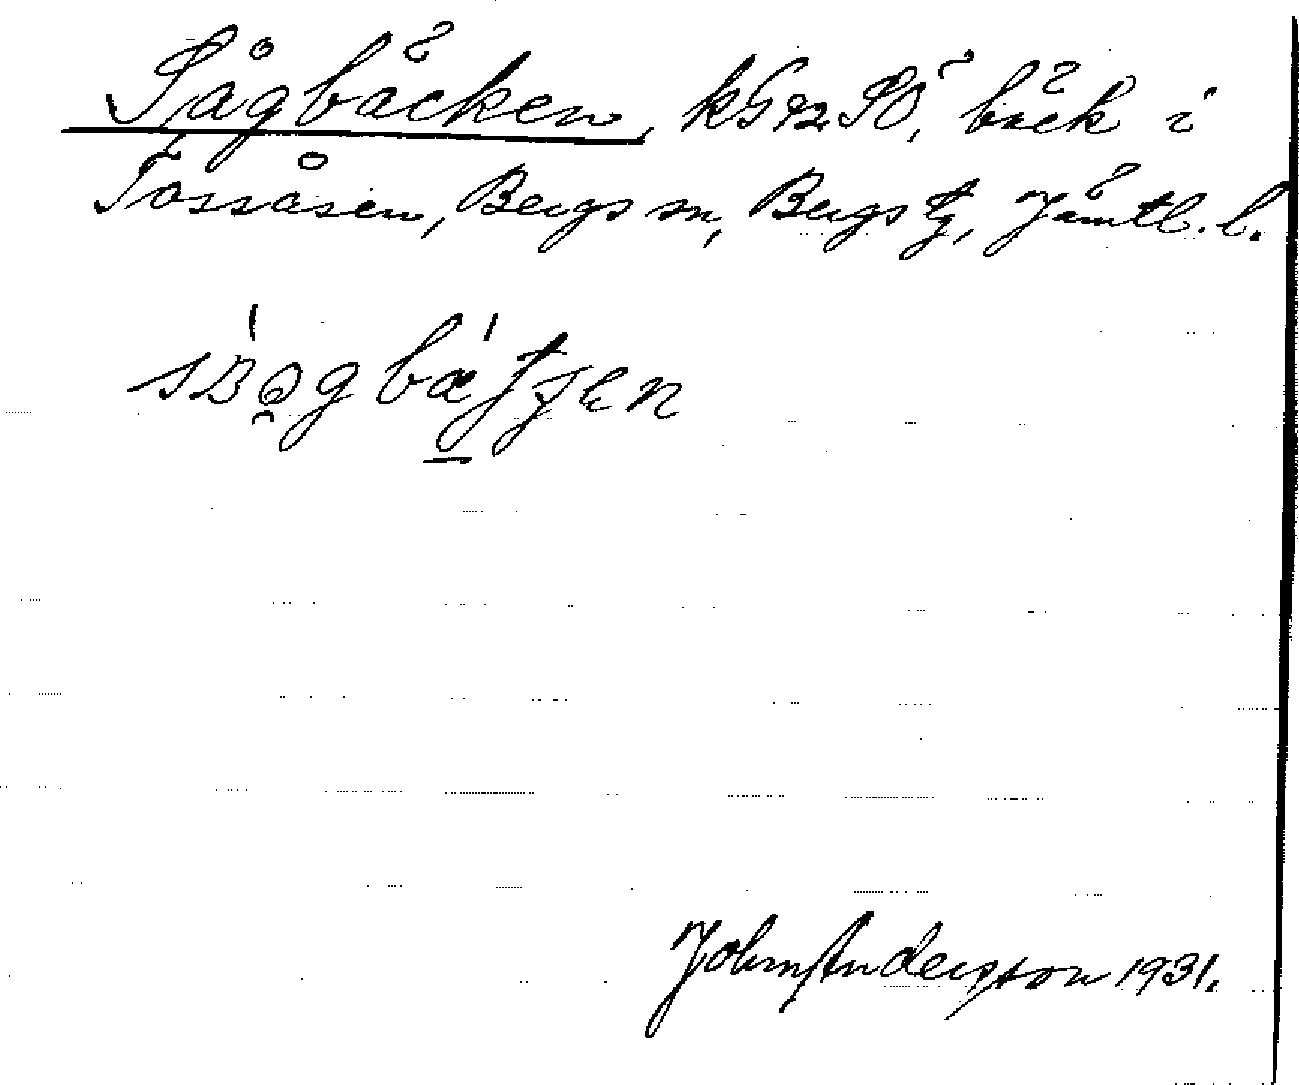 Sågbäcken, kG 92 SO, bäck i
Tossåsen, Bergs sn, Bergs tg, Jämtl. l.
John Andersson 1931.